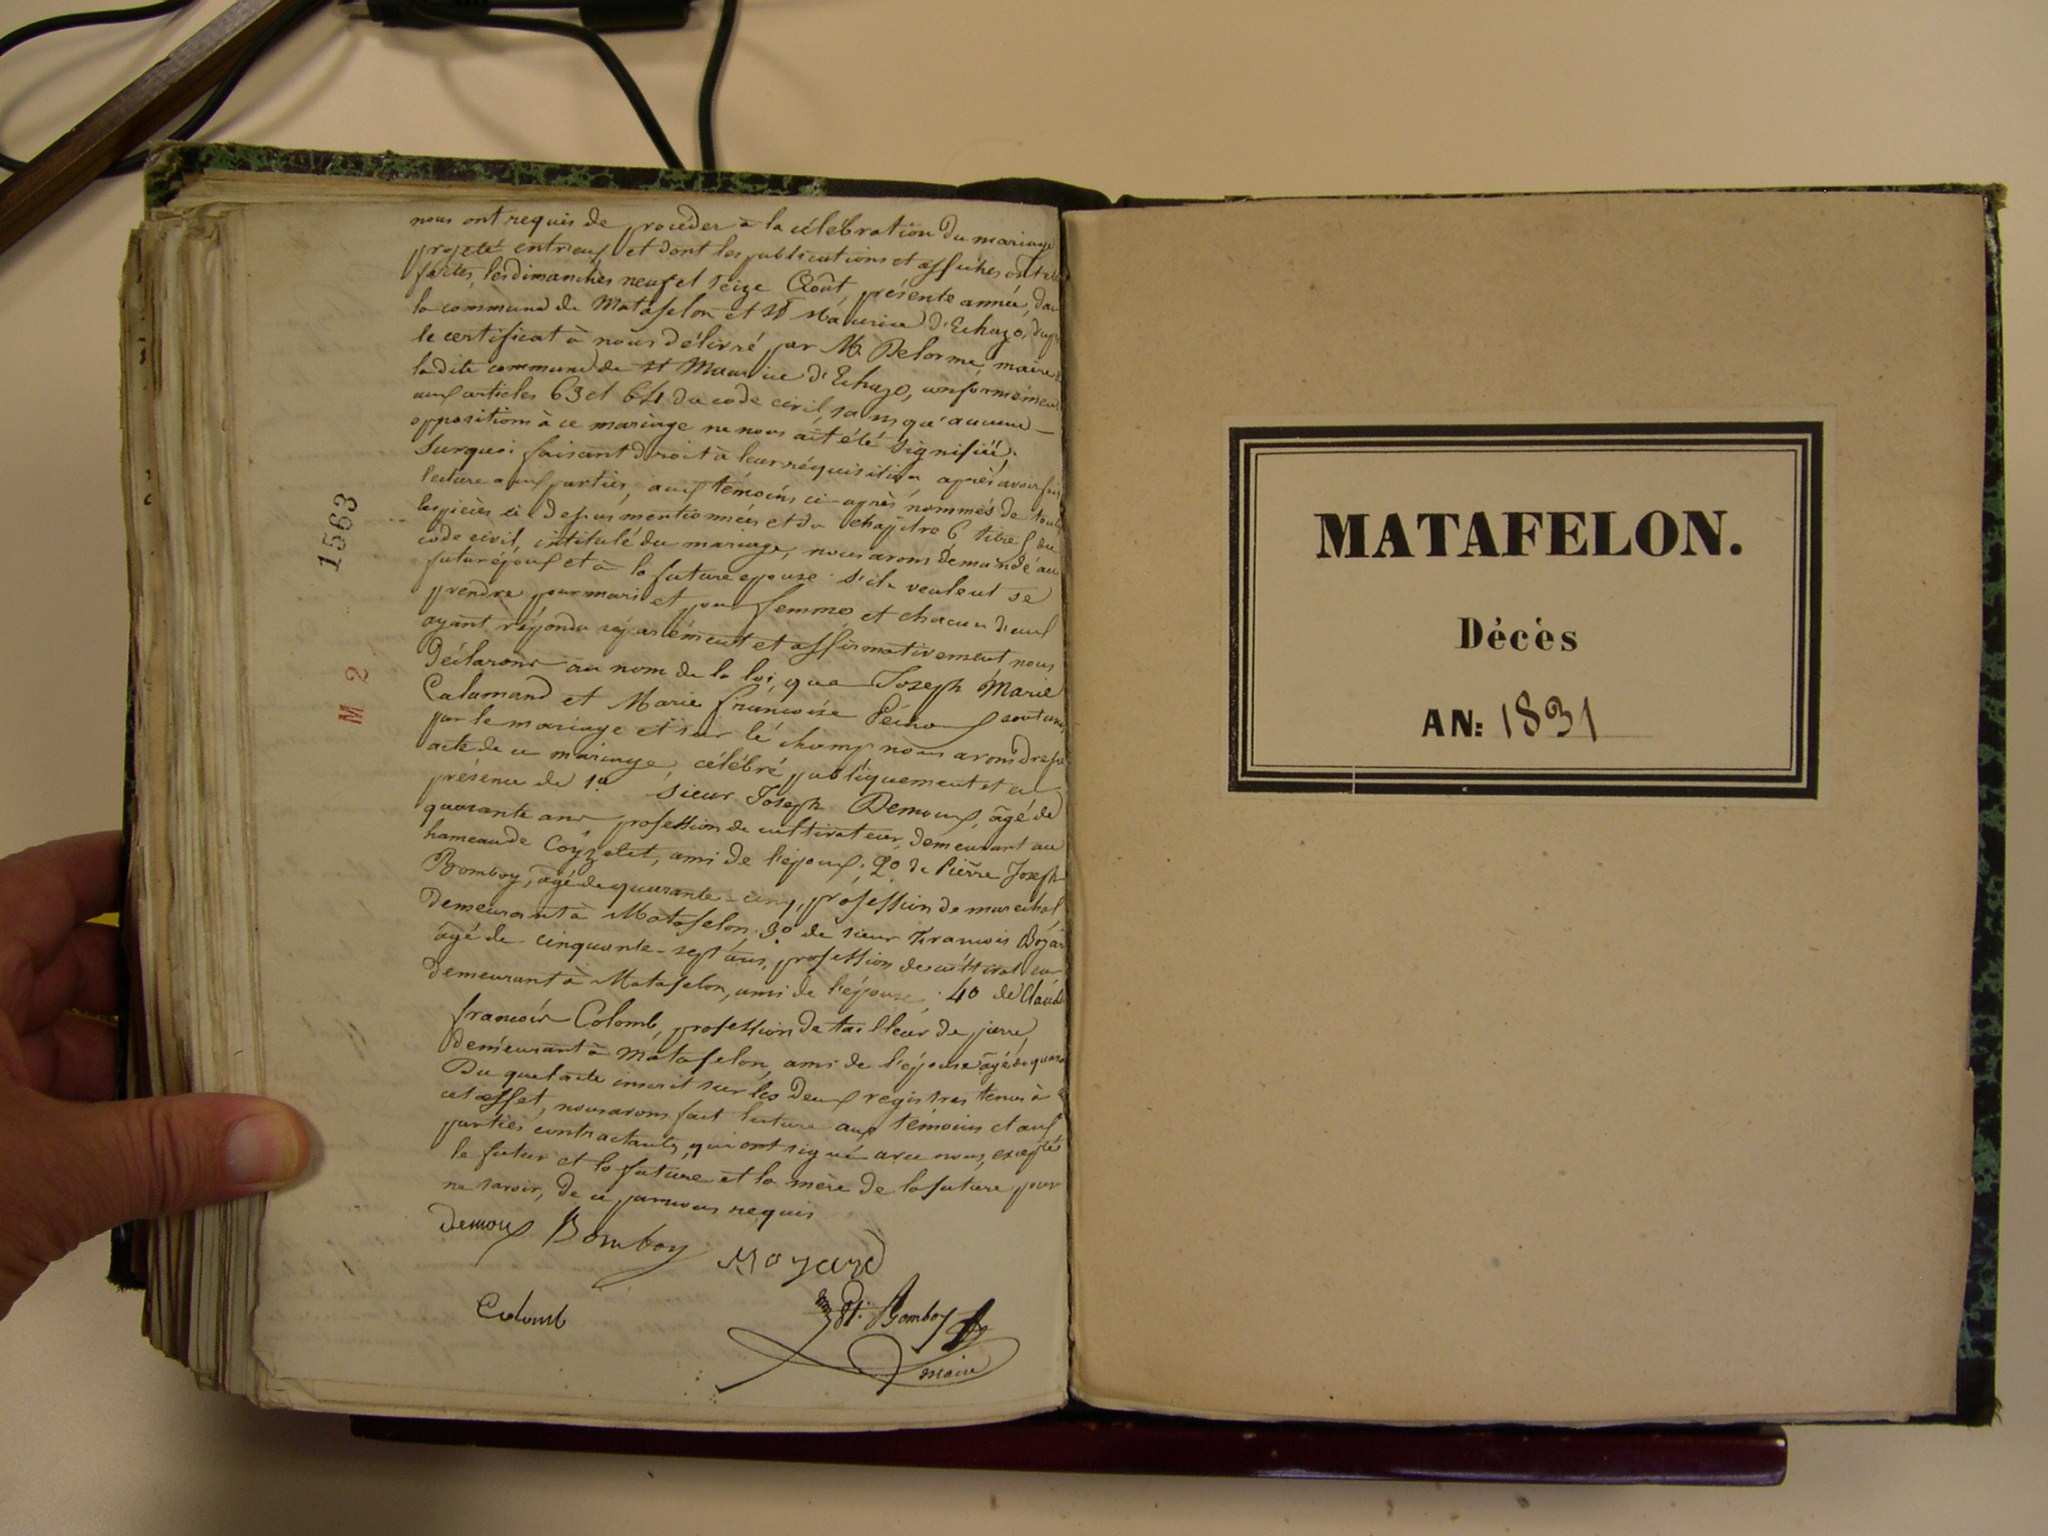 nous ont requis de procéder à la célébration du mariage
projeté entr'eux et dont les publications et affiches ont été
faites, les dimanches neuf et seize Août, présente année, dans
la commune de Matafelon et St Maurice d'Echazo,
le certificat à nous délivré par Mr Delorme, maire
la dite commune de St Maurice d'Echazo, conformément
aux articles 63 et 64 du code civil, sans qu'aucune
opposition à ce mariage ne nous ait été signifiée.
Surquoi faisant droit à leur réquisition après avoir fait
lecture aux parties, aux témoins ci-après nommés de toutes
les pièces ci dessus mentionnées et du chapitre 6 titre du
code civil, intitulé du mariage, nous avons demandé au
futur époux et à la future epouse s'ils veulent se
prendre pour mari et pour femme et chacun d'eux
ayant répondu séparément et affirmativement nous
déclarons au nom de la loi, que Joseph Marie
Calamand et Marie françoise sont unis
par le mariage et sur le champ nous avons dressé
acte de ce mariage célébré publiquement et en
présence de 1º Sieur Joseph Demoux, âgé de
quarante ans profession de cultivateur, demeurant au
hameau de Coyzelet, ami de l'époux, 2º de Pierre Joseph
Bomboy, âgé de quarante-cinq, profession de marechal
demeurant à Matafelon, 3º de sieur Francois
âgé de cinquante-sept ans, profession de cultivateur
demeurant à Matafelon, ami de l'épouse, 4º de Claude
françois Colomb, profession de tailleur de pierre,
demeurant à Matafelon, ami de l'épouse âgé de
Du quel acte inscrit sur les deux registres tenus à
cet effet, nous avons fait lecture aux témoins et aux
parties contractantes, qui ont signé avec nous, excepté
le futur et la future et la mère de la future pour
ne savoir, de ce par nous requis
Demoux Bomboy
Colomb Bomboy
maire
1563
M 2
MATAFELON.
Décès
AN: 1831